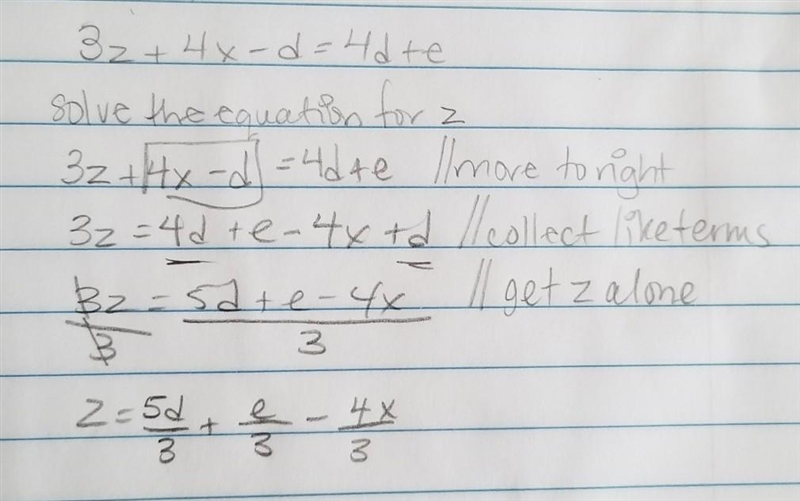 3z + 4x - d = 4d + e
solve the equation for z
3z + 4x - d = 4d + e //move to right
3z = 4d + e - 4x + d //collect like terms
3z/3 = (5d + e - 4x)/3 //get z alone
z = 5d/3 + e/3 - 4x/3